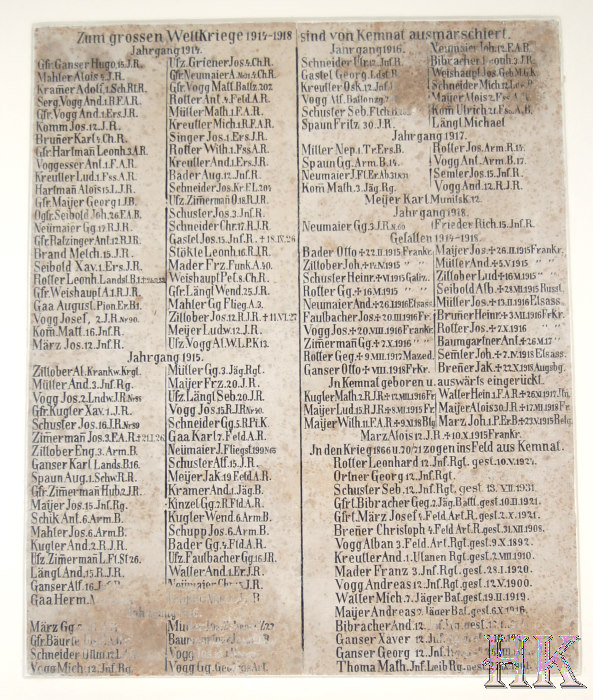 Zum grossen Weltkriege 1914-1918 sind von Kemnat ausmarschiert.
Jahrgang 1914.
Gfr. Ganser Hugo, 15. J.R.
Mahler Alois 4. J.R.
Kramer Adolf, 1. Sch. Rf. R.
Serg. Vogg And. 1. R.F.A.R.
Gfr. Vogg And. 1. Ers. J.R.
Komm Jos. 12. J.R.
Bruñer Karl 3. Ch. R.
Gfr. Hartmañ Leonh. 3. A.R.
Voggesser Ant. 1. F.A.R.
Kreutter Lud. 1. Fss A.R.
Hartmañ Alois 15. L.J.R.
Gfr. Maijer Georg 1. J.B.
Ogfr. Seibold Joh. 26. F.A.B.
Neümaier Gg. 17. R.J.R.
Gfr. Ratzinger Ant. 12. R.J.R.
Brand Melch. 15. J.R.
Seibold Xav. 1. Ers. J.R.
Rotter Leonh. Landst. B.1
Gfr. Weishaupt A. 1. R.J.R.
Gaa August. Pion. Er. B1.
Vogg Josef, 2. J.R. Nr 90.
Kom̃. Matt. 16. Jnf. R.
März Jos. 12. Jnf. R.
Jahrgang 1915.
Zittober Al. Krankw. Krgl.
Müller And. 3. Jnf. Rg.
Vogg Jos. 2. Lndw. J.R. Nr 88
Gfr. Kugler Xav. 1. J.R.
Schuster Jos. 16. J.R. Nr 80
Zimermañ Jos. 3. F.A.R. ✝ 21.1.26
Zittober Eng. 3. Arm. B.
Ganser Karl Lands. B. 16.
Spaun Aug. 1. Schw. R.R.
Gfr. Zim̃ermañ Hub. 2. J.R.
Maijer Jos. 15. Jnf. Rg.
Schik Ant. 6. Arm. B.
Mahler Jos. 6. Arm. B.
Kugler And. 2. R.J.R.
Ufz. Zim̃ermañ L. Ft. St 26.
Längl And. 15. R.J.R.
Ganser Alf. 16. J.
Gaa Herm.
März Gg.
Gfr. Bäurle
Schneider Ulm 12. J.
Vogg Mich. 12. Jnf. Rg.
Ufz. Griener Jos. 4. Ch. R.
Gfr. Neumaier A. Nr 1. 4. Ch. R.
Gfr. Vogg Matt. Batlz. 202
Rotter Ant. 4. Feld. A.R.
Müller Math. 1. F.A.R.
Kreutter Mich. 1. R.F.A.R.
Singer Jos. 1. Ers. J.R.
Rotter With. 1. Fss. A.R.
Kreutter And. 1. Ers. J.R.
Bader Aug. 12. Jnf. R.
Schneider Jos. Kr. F.L. 205
Ufz. Zim̃erman O. 18. R.J.R.
Schuster Jos. 3. Jnf. R.
Schneider Chr. 17. R.J.R.
Gastel Jos. 15. Jnf. R. ✝ 18.IX.26
Stökle Leonh. 16. R.J.R.
Mader Frz. Funk. A. 40.
Weishaupt Pet. 8. Ch. R.
Gfr. Längl Wend. 25. J.R.
Mahler Gg. Flieg. A. 3.
Zittober Jos. 12. R.J.R. ✝ 11.VI.27
Meijer Ludw. 12. J.R.
Ufz. Vogg Al. W.L.P.K. 13.
Müller Gg. 3. Jäg. Rgt.
Maijer Frz. 20. J.R.
Ufz. Längl Seb. 20. J.R.
Vogg Jos. 15. R.J.R Nr 40.
Schneider Gg. 5. R. Pi. K.
Gaa Karl 7. Feld. A.R.
Neümaier J. Fliegst. 199 Nr 65
Schuster Alf. 15. J.R.
Meijer Jak. 19. Feld. A.R.
Kramer And. 1. Jäg. B.
Kinzel Gg. 2. R. Fld. A.R.
Kugler Wend. 6. Arm. B.
Schupp Jos. 6. Arm. B.
Bader Gg. 4. Fld. A.R.
Ufz. Faulbacher Gg. 16. J.R.
Walter And. 1. Er. J.R.
Vogg Gg.
Jahrgang 1916.
Schneider Ulr. 12. Jnf. R.
Gastel Georg. 1. Ldst. B.
Kreutter Osk. 12. Jnf.
Vogg Alf.
Schuster Seb.
Spaun Fritz. 30. J.R.
Neumaier Joh. 12. E.A.B.
Bibracher
Weishaupt Jos. Geb. M.G.K.
Schneider Mich. 12.
Maijer Alois 2. Fss. A.
Kom̃ Ulrich 21. Fss. A.B.
Längl Michael
Jahrgang 1917.
Miller Nep. 1. Tr. Ers. B.
Spaun Gg. Arm. B. 14.
Neumaier J. Fl. Er. Ab. 31
Kom̃ Math. 3. Jäg. Rg.
Rotter Jos. Arm. R. 14.
Vogg Ant. Arm. B. 17.
Semler Jos. 15. Jnf. R.
Vogg And. 12. R.J.R.
Meijer Karl. Munitsk. 12.
Jahrgang 1918.
Neumaier Gg. 3. J.R. Nr 69
Friedler Rich. 15. Jnf. R.
Gefallen 1914-1918.
Bader Otto ✝ 22.11.1915 Frankr.
Zittober Joh. ✝ 14.X.1915 "
Schuster Heinr. ✝ VI.1915 Galiz.
Rotter Gg. ✝ 16.X.1915 " "
Neumaier And. ✝ 26.11.1916 Elsass
Faulbacher Jos. ✝ 20.III.1916 Fr.
Vogg Jos. ✝ 20.VIII.1916 Frankr.
Zimermañ Gg. ✝ 7.X.1916 " "
Rotter Geg. ✝ 9.VIII.1917 Mazed.
Ganser Otto ✝ VIII.1918 Fr Kr.
Maijer Jos. ✝ 26.11.1915 Frankr.
Müller And. ✝ 5.V.1915 "
Zittober Lud ✝ 16.VI.1915 " "
Seibold Alb. ✝ 28.VII.1915 Russl.
Müller Jos. ✝ 13.11.1916 Elsass.
Bruñer Heinr. ✝ 3.VIII.1916 Fr Kr.
Rotter Jos. ✝ 7.X.1916 " "
Baumgartner Ant. ✝ 26.XI.17
Semler Joh. ✝ 7.IV.1918 Elsass.
Breñer Jak. ✝ 22.X.1918 Augsbg.
Jn Kemnat geboren u. auswärts eingerückt.
Kugler Math. 2. R.J.R ✝ 12.VIII.1916 Fr.
Maijer Lud. 15. R.J.R ✝ 8.VII.1915 Fr.
Maijer With. 11. F.A.R ✝ 9.X.18 Blg.
Walter Hein. 1. F.A.R ✝ 26.XI.1917 Jtn.
Maijer Alois 30. J.R ✝ 17.VIII.1918 Fr.
März Joh. 1. P. Er. B ✝ 23.XI.1915 Belg.
März Alois 12. J.R ✝ 10.X.1915 Frankr.
Jn den Krieg 1866 u. 70/71 zogen ins Feld aus Kemnat.
Rotter Leonhard 12. Jnf. Rgt. gest. 10.V.1924.
Ortner Georg 12. Jnf. Rgt.
Schuster Seb. 12. Jnf. Rgt. gest. 13.VII.1931.
Gfrt. Bibracher Geg. 2. Jäg. Batt. gest. 10.11.1921.
Gfrt. März Josef 4. Feld Art. R. gest. 2.X.1921.
Breñer Christoph 4. Feld Art. R. gest. 31.XII.1908.
Vogg Alban 3. Feld. Art. Rgt. gest. 9.X.1892.
Kreutter And. 1. Ulanen Rgt. gest. 2.VIII.1910.
Mader Franz 3. Jnf. Rgt. gest. 28.1.1920.
Vogg Andreas 12. Jnf. Rgt. gest. 12.V.1900.
Walter Mich. 7. Jäger Bat. gest. 19.11.1919.
Maijer Andreas 7. Jäger Bat. gest. 6.X.1916.
Bibracher And. 12. Jnf.
Ganser Xaver 12. Jnf.
Ganser Georg 12. Jnf. Rgt.
Thoma Math. Jnf. Leib Rg. gest.
HK